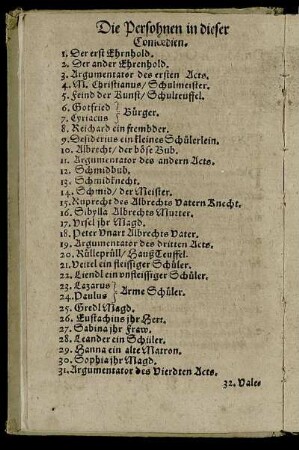 Die Persohnen in dieser
Comœdien.
1. Der erst Ehrnhold.
2. Der ander Ehrenhold.
3. Argumentator des ersten Acts.
4. M. Christianus/ Schulmeister.
5. Feind der Kunst/ Schulteuffel.
6. Gotfried } Bürger.
7. Cyriacus }
8. Reichard ein frembder.
9. Desiderius ein kleines Schülerlein.
10. Albrecht/ der böse Bub.
11. Argumentator des andern Acts.
12. Schmidbub.
13. Schmidknecht.
14. Schmid/ der Meister.
15. Ruprecht des Albrechts Vatern Knecht.
16. Sibylla Albrechts Mutter.
17. Ursel jhr Magd.
18. Peter Unart Albrechts Vater.
19. Argumentator des dritten Acts.
20. Rülleprüll/ Haußteuffel.
21. Veitel ein fleissiger Schüler.
22. Liendl ein unfleissiger Schüler.
23. Lazarus } Arme Schüler.
24. Paulus }
25. Gredl Magd.
26. Eustachius jhr Herr.
27. Sabina jhr Fraw.
28. Leander ein Schüler.
29. Hanna ein alte Matron.
30. Sophia jhr Magd.
31. Argumentator des Vierdten Acts.
32. Vale⸗